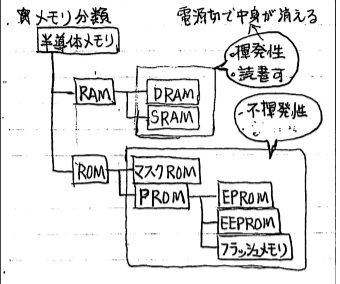 メモリ分類
電源切で中身が消える
半導体メモリ
・揮発性
・読書可
RAM
DRAM
SRAM
・不揮発性
ROM
マスクROM
PROM
EPROM
EEPROM
フラッシュメモリ